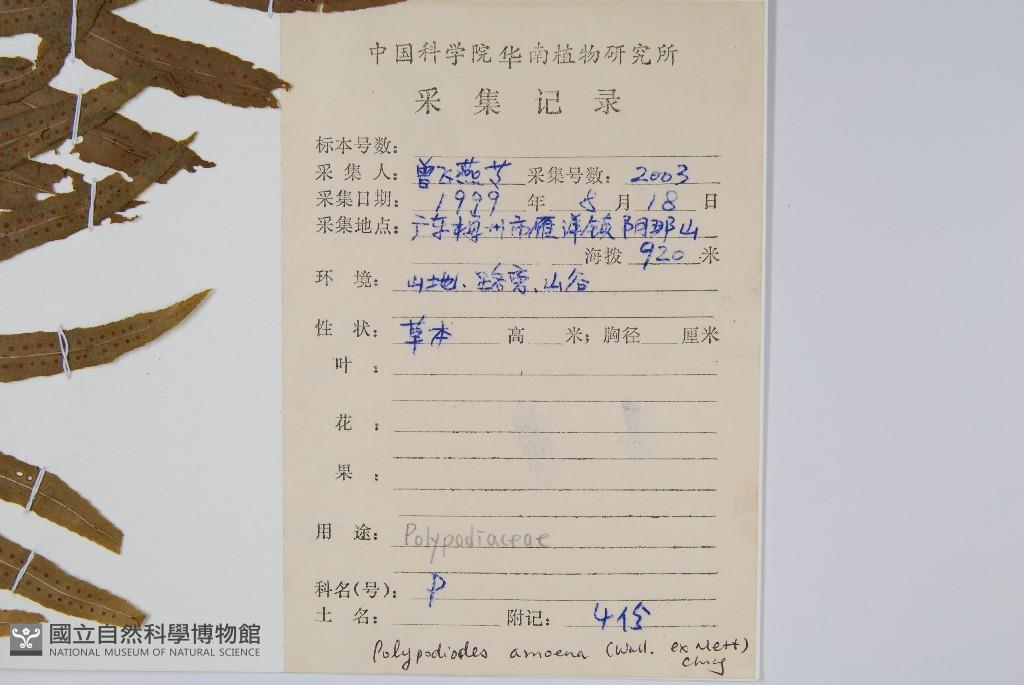 中国科学院华南植物研究所
采集记录
标本号数:
采集人: 曾飞燕等 采集号数: 2003
采集日期: 1999 年 8 月 18 日
采集地点: 广东梅州市雁洋镇阴那山
海拨 920 米
环境: 山地、路旁、山谷
性状: 草本 高 米; 胸径 厘米
叶:
花:
果:
用途: Polypodiaceae
科名(号): P
土名: 附记: 4份
Polypodiodes amoena (Wall. ex Mett)
Ching
國立自然科學博物館
NATIONAL MUSEUM OF NATURAL SCIENCE